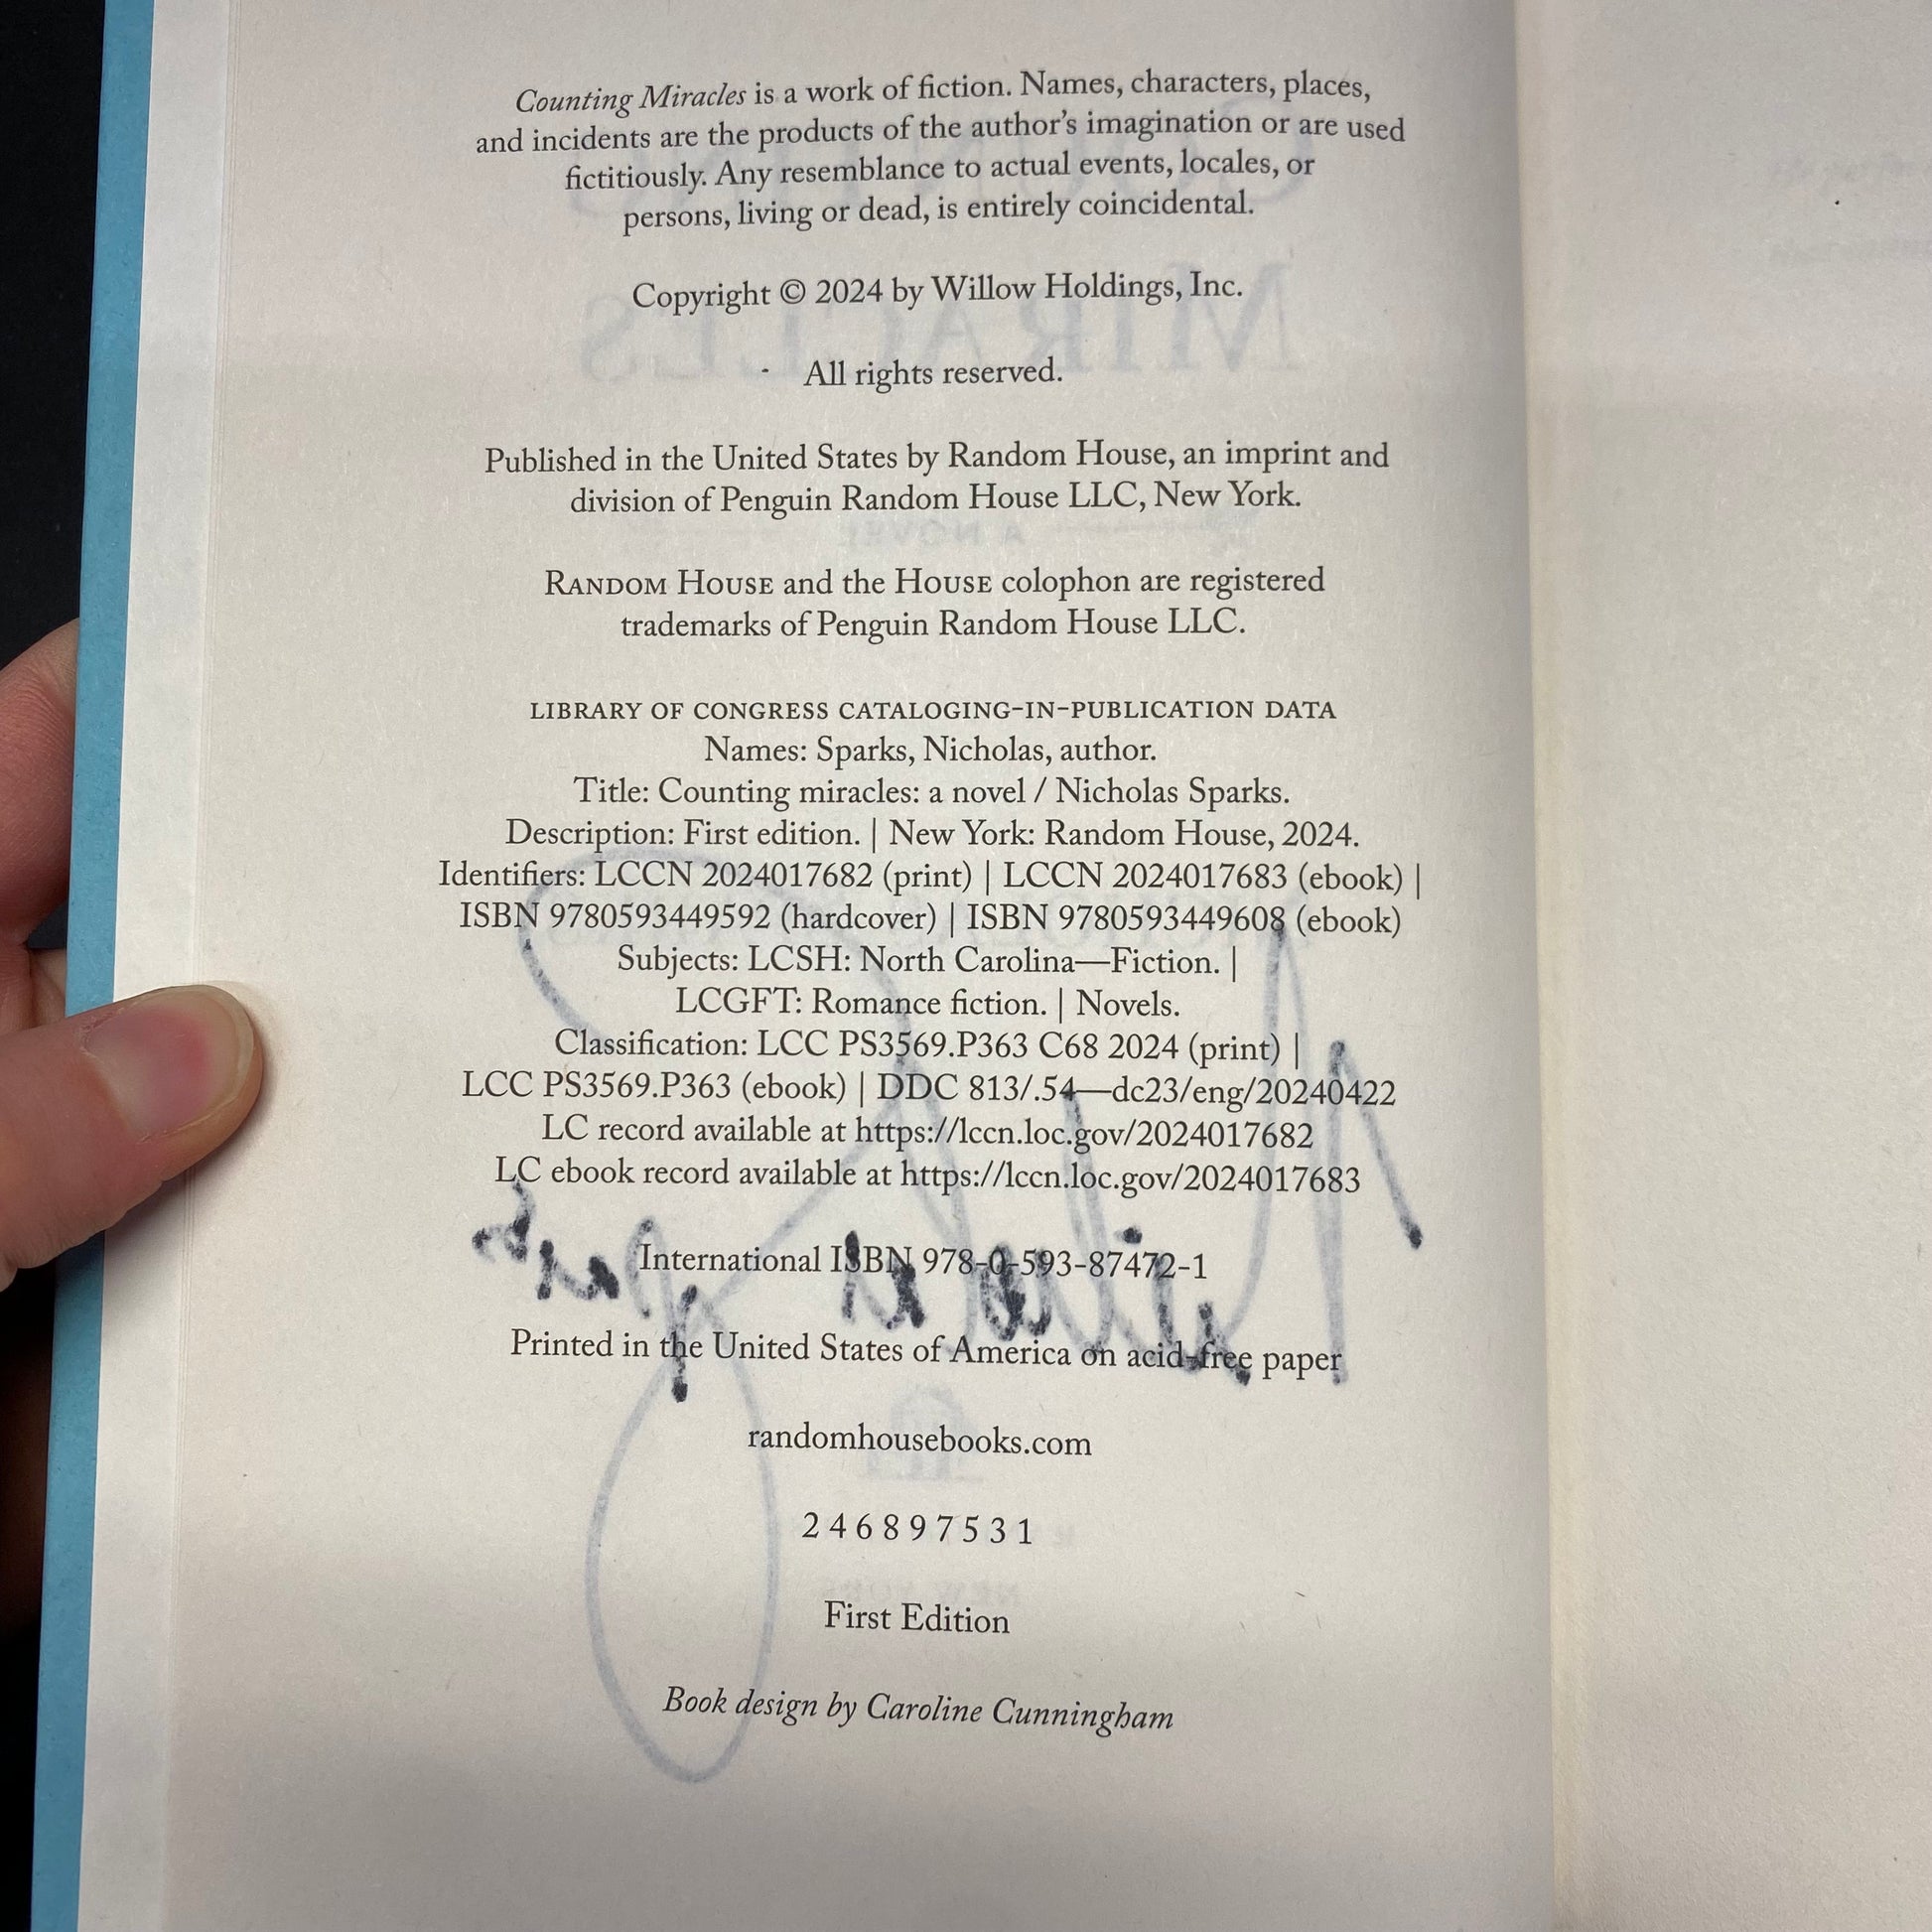 Counting Miracles is a work of fiction. Names, characters, places,
and incidents are the products of the author's imagination or are used
fictitiously. Any resemblance to actual events, locales, or
persons, living or dead, is entirely coincidental.
Copyright © 2024 by Willow Holdings, Inc.
All rights reserved.
Published in the United States by Random House, an imprint and
division of Penguin Random House LLC, New York.
RANDOM HOUSE and the HOUSE colophon are registered
trademarks of Penguin Random House LLC.
LIBRARY OF CONGRESS CATALOGING-IN-PUBLICATION DATA
Names: Sparks, Nicholas, author.
Title: Counting miracles: a novel / Nicholas Sparks.
Description: First edition. | New York: Random House, 2024.
Identifiers: LCCN 2024017682 (print) | LCCN 2024017683 (ebook) |
ISBN 9780593449592 (hardcover) | ISBN 9780593449608 (ebook)
Subjects: LCSH: North Carolina—Fiction. |
LCGFT: Romance fiction. | Novels.
Classification: LCC PS3569.P363 C68 2024 (print) |
LCC PS3569.P363 (ebook) | DDC 813/.54—dc23/eng/20240422
LC record available at https://lccn.loc.gov/2024017682
LC ebook record available at https://lccn.loc.gov/2024017683
International ISBN 978-0-593-87472-1
Printed in the United States of America on acid-free paper
randomhousebooks.com
2 4 6 8 9 7 5 3 1
First Edition
Book design by Caroline Cunningham